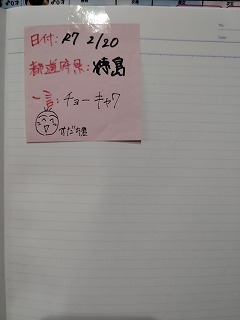 日付: R7 2/20
都道府県: 徳島
一言: チョーキャワ
すだちくん